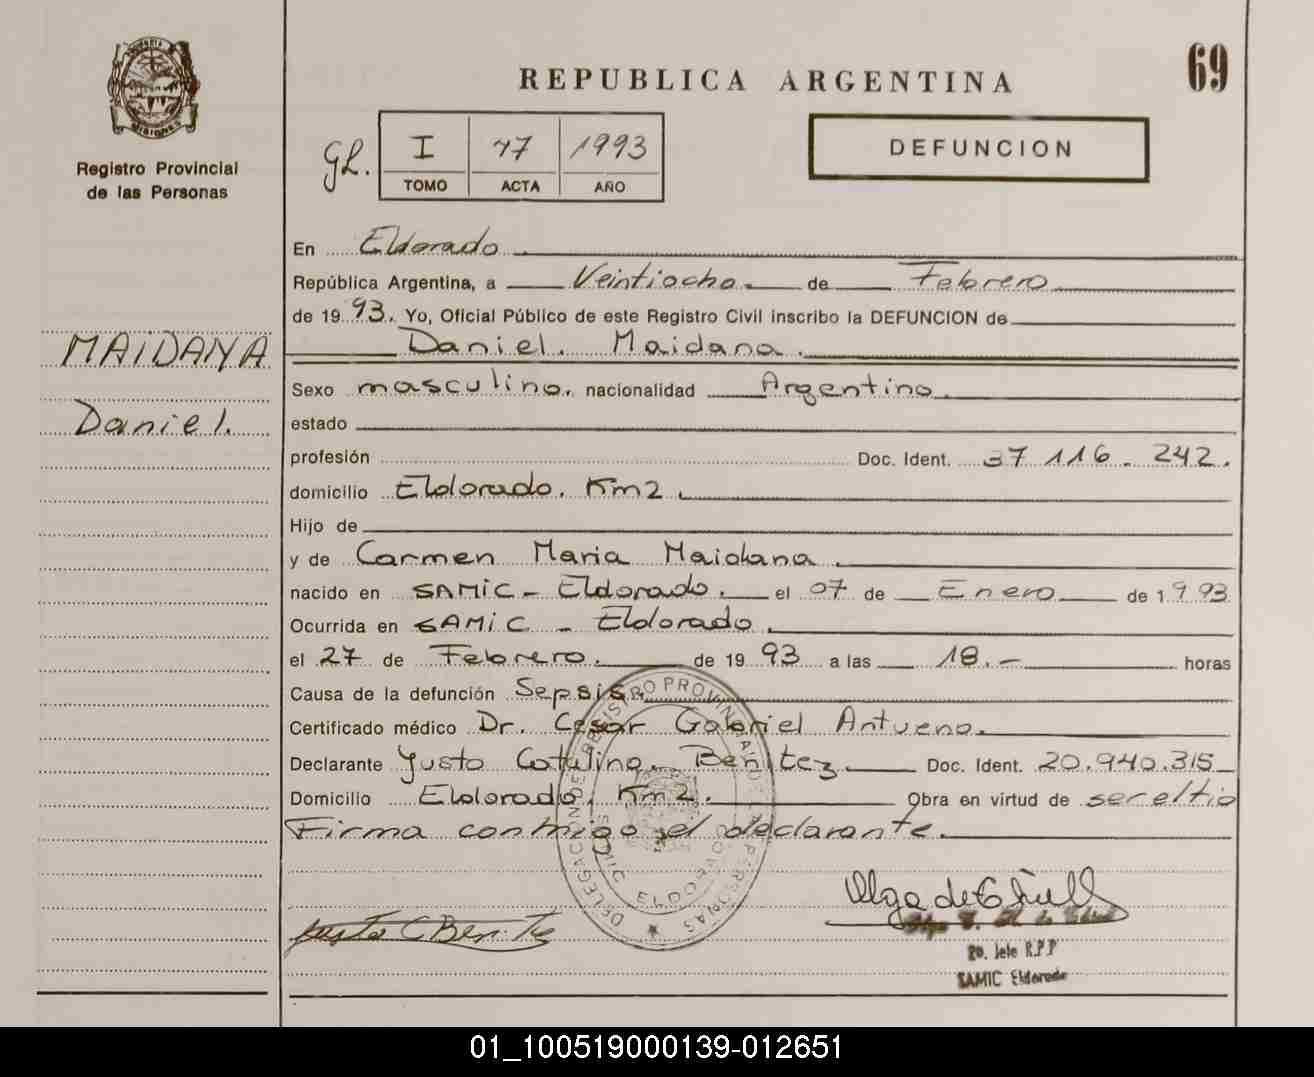 REPUBLICA ARGENTINA
69
MISIONES
Registro Provincial
de las Personas
GL.
I 47 1993
TOMO ACTA AÑO
DEFUNCION
En Eldorado
República Argentina, a Veintiocho de Febrero
de 1993. Yo, Oficial Público de este Registro Civil inscribo la DEFUNCION de
Daniel. Maidana.
MAIDANA
Daniel.
Sexo masculino. nacionalidad Argentino.
estado
profesión Doc. Ident. 37 116. 242.
domicilio Eldorado. Km2.
Hijo de
y de Carmen Maria Maidana.
nacido en SAMIC - Eldorado. el 07 de Enero de 1993
Ocurrida en SAMIC - Eldorado.
el 27 de Febrero. de 1993 a las 18.- horas
Causa de la defunción Sepsis.
Certificado médico Dr. Cesar Gabriel
Declarante Justo Catalino. Benitez. Doc. Ident. 20.940.315
Domicilio Eldorado. Km2. Obra en virtud de ser el tio
Firma conmigo el declarante.
DELEGACION DE REGISTRO PROVINCIAL DE LAS PERSONAS
ELDORADO
Justo C Benitez
Olga de
2o. Jefe R.P.P
SAMIC Eldorado
01_100519000139-012651